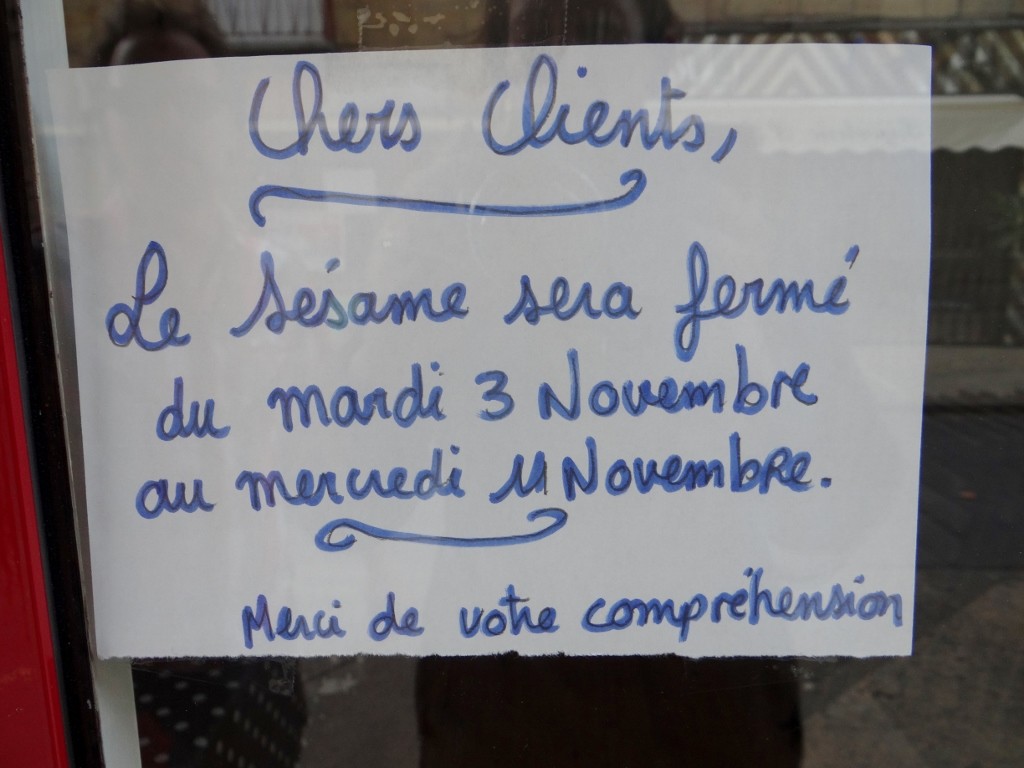 Chers Clients,
Le Sésame sera fermé
du mardi 3 Novembre
au mercredi 11 Novembre.
Merci de votre compréhension